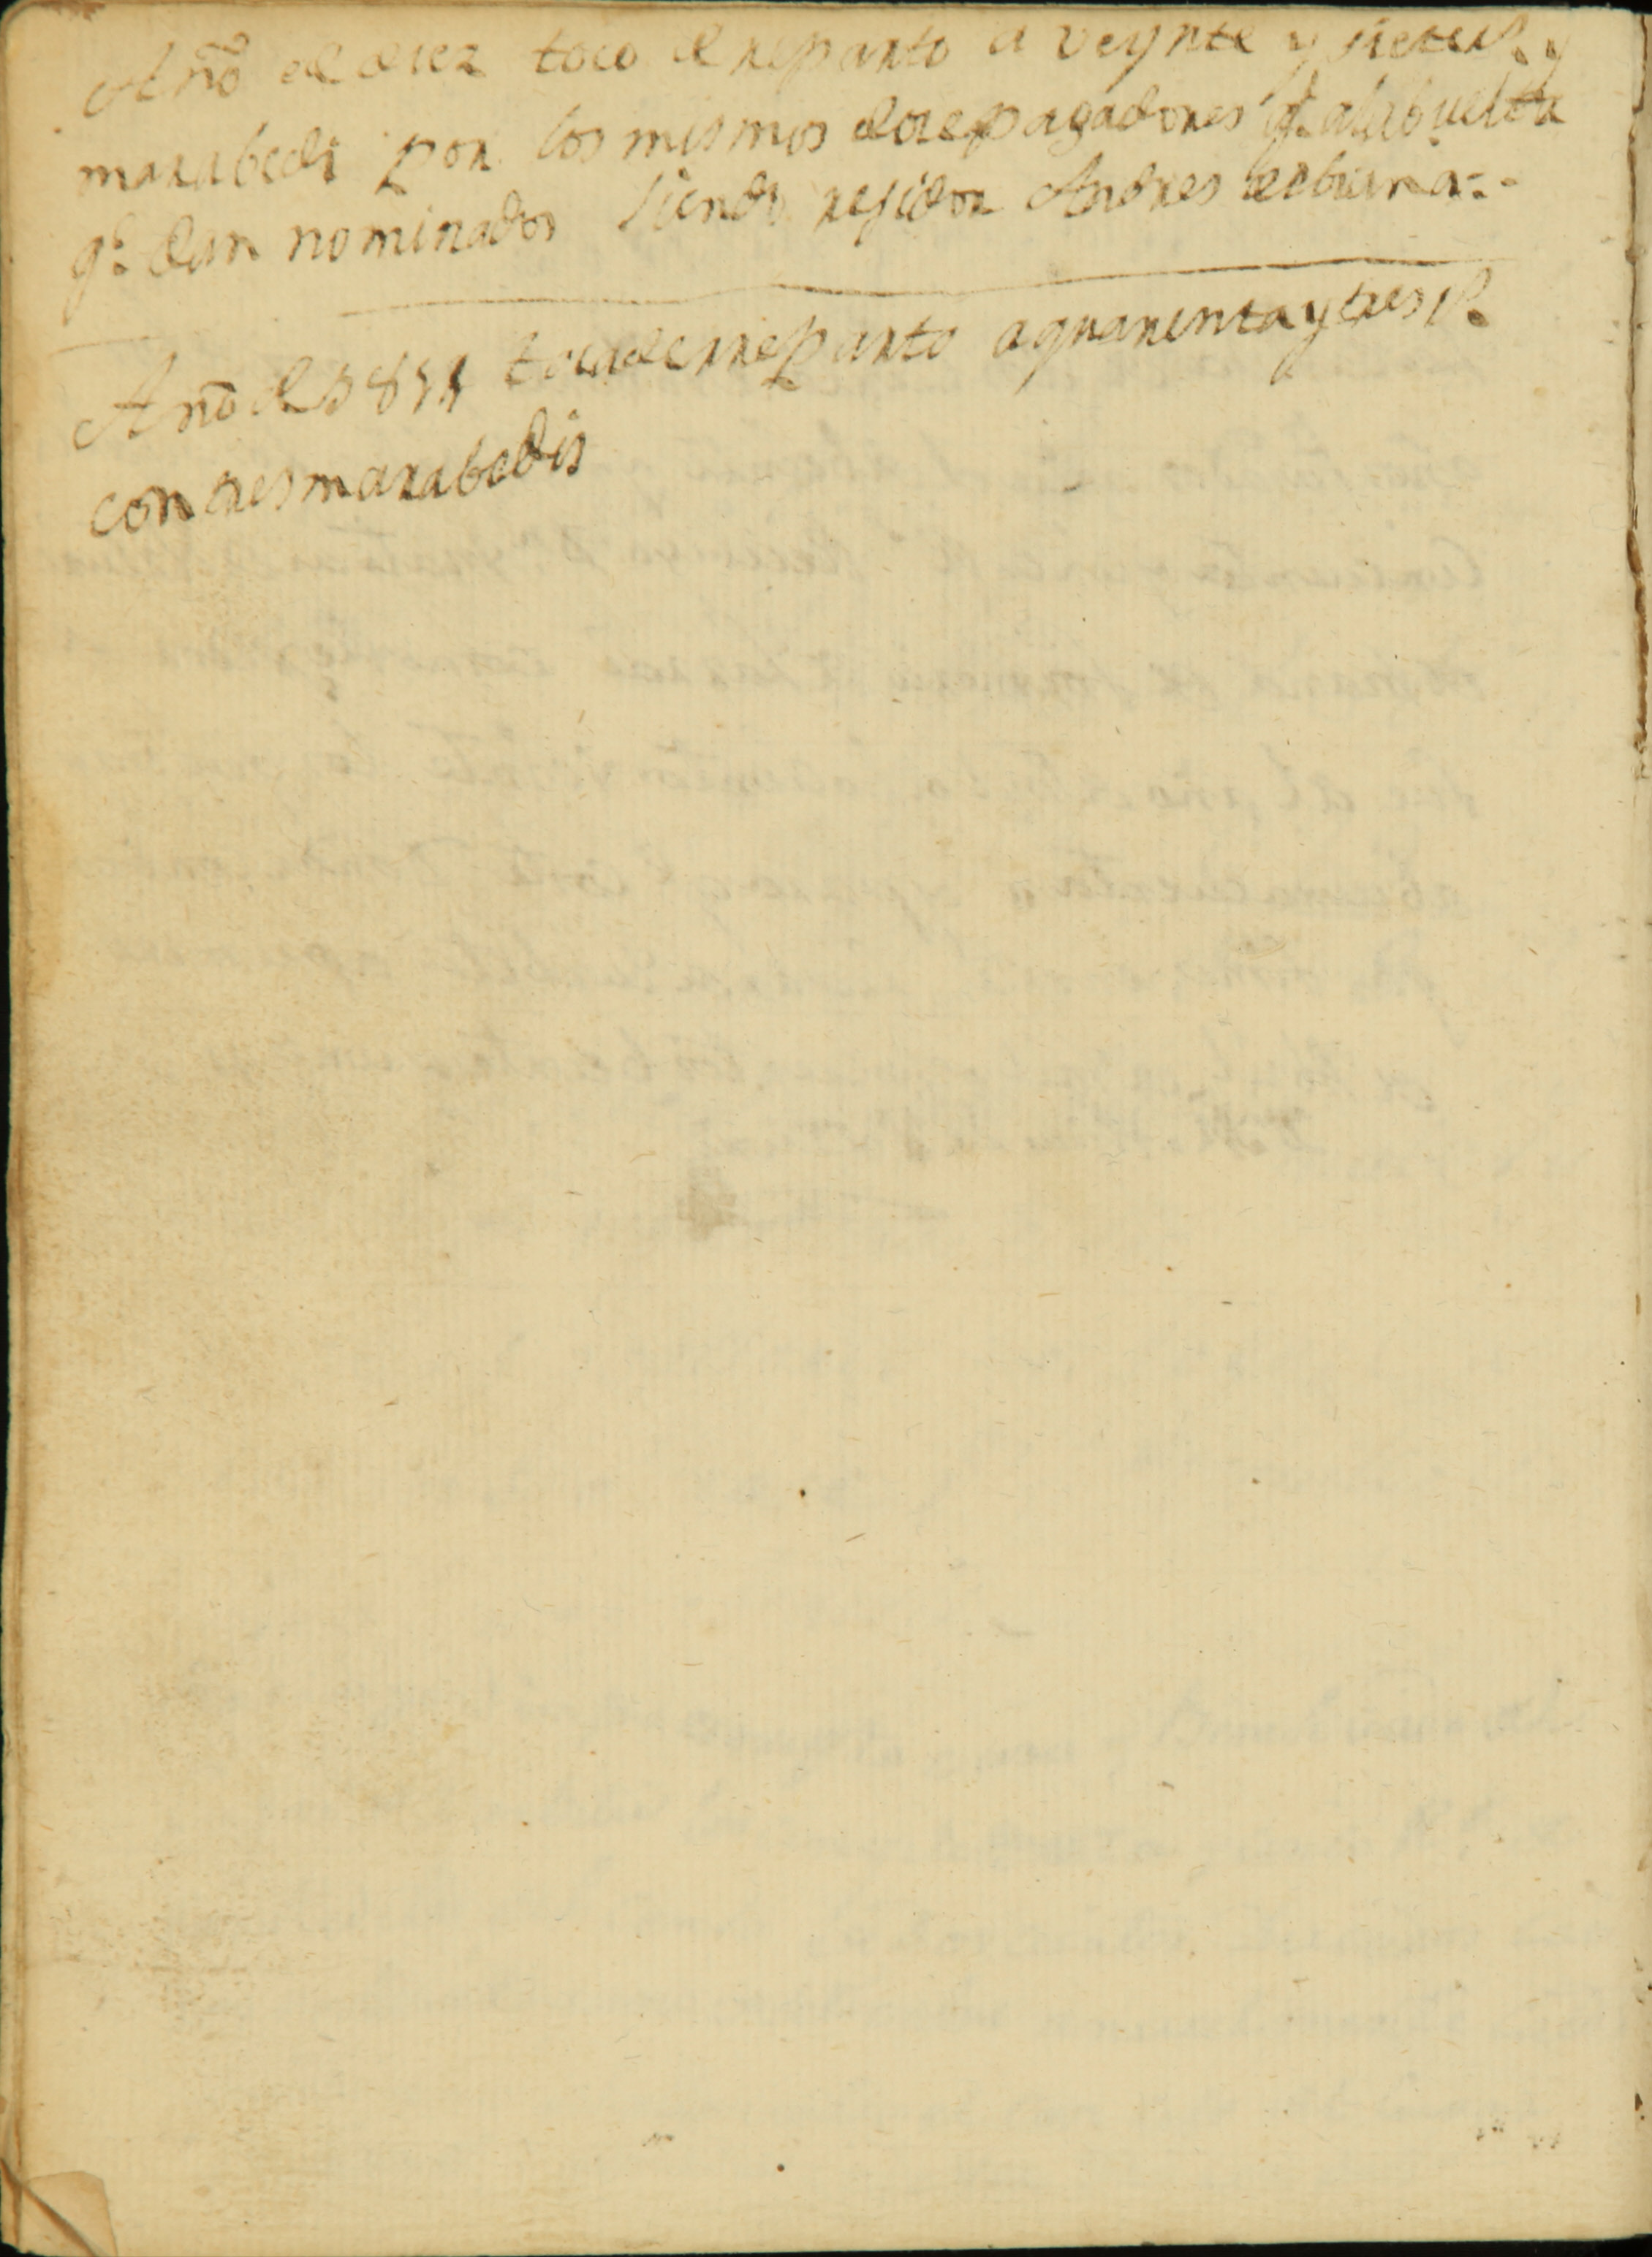 Año de diez toco de reparto a veynte y siete Rs. y
marabedi por los mismos doce pagadores q.e a la buelta
q.e dan nominados siendo rejidor Andres
Año de 1811 toca de rreparto a quarenta y tres Rs.
con tres marabedis